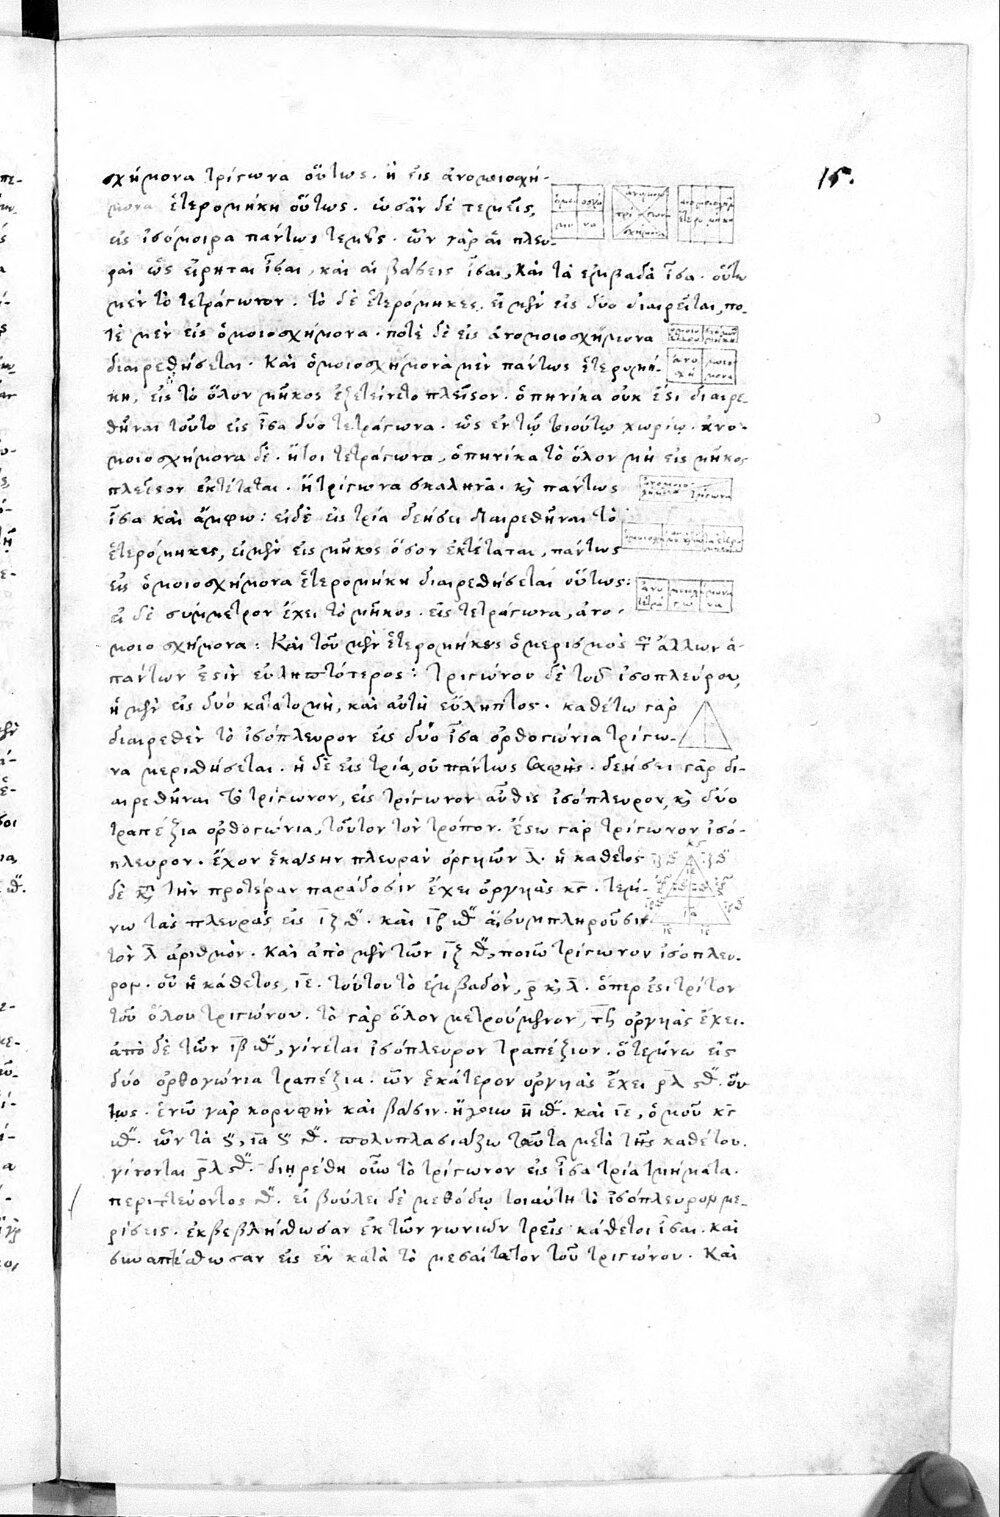 15.
σχήμονα τρίγωνα οὕτως. ἢ εἰς ἀνομοιοσχή-
μονα ἑτερομήκη οὕτως. ὡσὰν δὲ τεμεῖς,
εἰς ἰσόμοιρα πάντως τεμεῖς. ὧν γὰρ αἱ πλευ-
ραὶ ὡς εἴρηται ἶσαι, καὶ αἱ βάσεις ἶσαι, καὶ τὰ ἐμβαδὰ ἶσα. οὕτω
μὲν τὸ τετράγωνον: τὸ δὲ ἑτερόμηκες, εἰ μὲν εἰς δύο διαιρεῖται, πο-
τὲ μὲν εἰς ὁμοιοσχήμονα. ποτὲ δὲ εἰς ἀνομοιοσχήμονα
διαιρεθήσεται. καὶ ὁμοιοσχήμονα μὲν πάντως ἑτερομή-
κη, εἰς τὸ ὅλον μῆκος ἐξετείνετο πλεῖστον. ὁπηνίκα οὐκ ἔστι διαιρε-
θῆναι τοῦτο εἰς ἶσα δύο τετράγωνα. ὡς ἐν τῷ τοιούτῳ χωρίῳ. ἀνο-
μοιοσχήμονα δὲ. ἤτοι τετράγωνα, ὁπηνίκα τὸ ὅλον μὴ εἰς μῆκος
πλεῖστον ἐκτέταται. ἢ τρίγωνα σκαληνὰ. κ̀ πάντως
ἶσα καὶ ἄμφω: εἰ δὲ εἰς τρία δεήσει διαιρεθῆναι τὸ
ἑτερόμηκες, εἰ μὲν εἰς μῆκος ὅσον ἐκτέταται, πάντως
εἰς ὁμοιοσχήμονα ἑτερομήκη διαιρεθήσεται οὕτως:
εἰ δὲ σύμμετρον ἔχει τὸ μῆκος. εἰς τετράγωνα, ἀνο-
μοιοσχήμονα: Καὶ τοῦ μὲν ἑτερομήκους ὁ μερισμὸς τῶν ἄλλων ἁ-
πάντων ἐστὶν εὐληπτότερος: τριγώνου δὲ τοῦ ἰσοπλεύρου,
ἡ μὲν εἰς δύο κατατομὴ, καὶ αὐτὴ εὔληπτος. καθέτω γὰρ
διαιρεθὲν τὸ ἰσόπλευρον εἰς δύο ἶσα ὀρθογώνια τρίγω-
να μερισθήσεται. ἡ δὲ εἰς τρία, οὐ πάντως σαφής. δεήσει γὰρ δι-
αιρεθῆναι τὸ τρίγωνον, εἰς τρίγωνον αὖθις ἰσόπλευρον, κ̀ δύο
τραπέζια ὀρθογώνια, τοῦτον τὸν τρόπον. ἔστω γὰρ τρίγωνον ἰσό-
πλευρον. ἔχον ἑκάστην πλευρὰν ὀργυιῶν λ̄. ἡ κάθετος
δὲ κατὰ τὴν προτέραν παράδοσιν ἔχει ὀργυιὰς κς̄. τέμ-
νω τὰς πλευρὰς εἰς ιζ̄ δ″. καὶ ιβ̄ ω″ ἃ συμπληροῦσιν
τὸν λ̄ ἀριθμὸν. καὶ ἀπὸ μὲν τῶν ιζ̄ δ″, ποιῶ τρίγωνον ἰσόπλευ-
ρον. οὗ ἡ κάθετος, ιε̄. τούτου τὸ ἐμβαδὸν, ρ̄ κ̀ λ̄. ὅπερ ἐστὶ τρίτον
τοῦ ὅλου τριγώνου. τὸ γὰρ ὅλον μετρούμενον, τϟ̄ ὀργυιὰς ἔχει.
ἀπὸ δὲ τῶν ιβ̄ ω″, γίνεται ἰσόπλευρον τραπέζιον. ὃ τέμνω εἰς
δύο ὀρθογώνια τραπέζια. ὧν ἑκάτερον ὀργυιὰς ἔχει ρ̄λ ς″. οὕ-
τως. ἑνῶ γὰρ κορυφὴν καὶ βάσιν. ἤγουν η̄ ω″. καὶ ιε̄, ὁμοῦ κγ̄
ω″. ὧν τὰ 𐅶, ιᾱ 𐅶 γ″. πολυπλασιάζω ταῦτα μετὰ τῆς καθέτου.
γίνονται ρ̄λ ς″. διῃρέθη οὕτω τὸ τρίγωνον εἰς ἶσα τρία τμήματα.
περιττεύοντος γ″. εἰ βούλει δὲ μεθόδῳ τοιαύτη τὸ ἰσόπλευρον με-
ρίσεις. ἐκβεβλήσθωσαν ἐκ τῶν γωνιῶν τρεῖς κάθετοι ἶσαι. καὶ
συναπτέσθωσαν εἰς ἓν κατὰ τὸ μεσαίτατον τοῦ τριγώνου. Καὶ